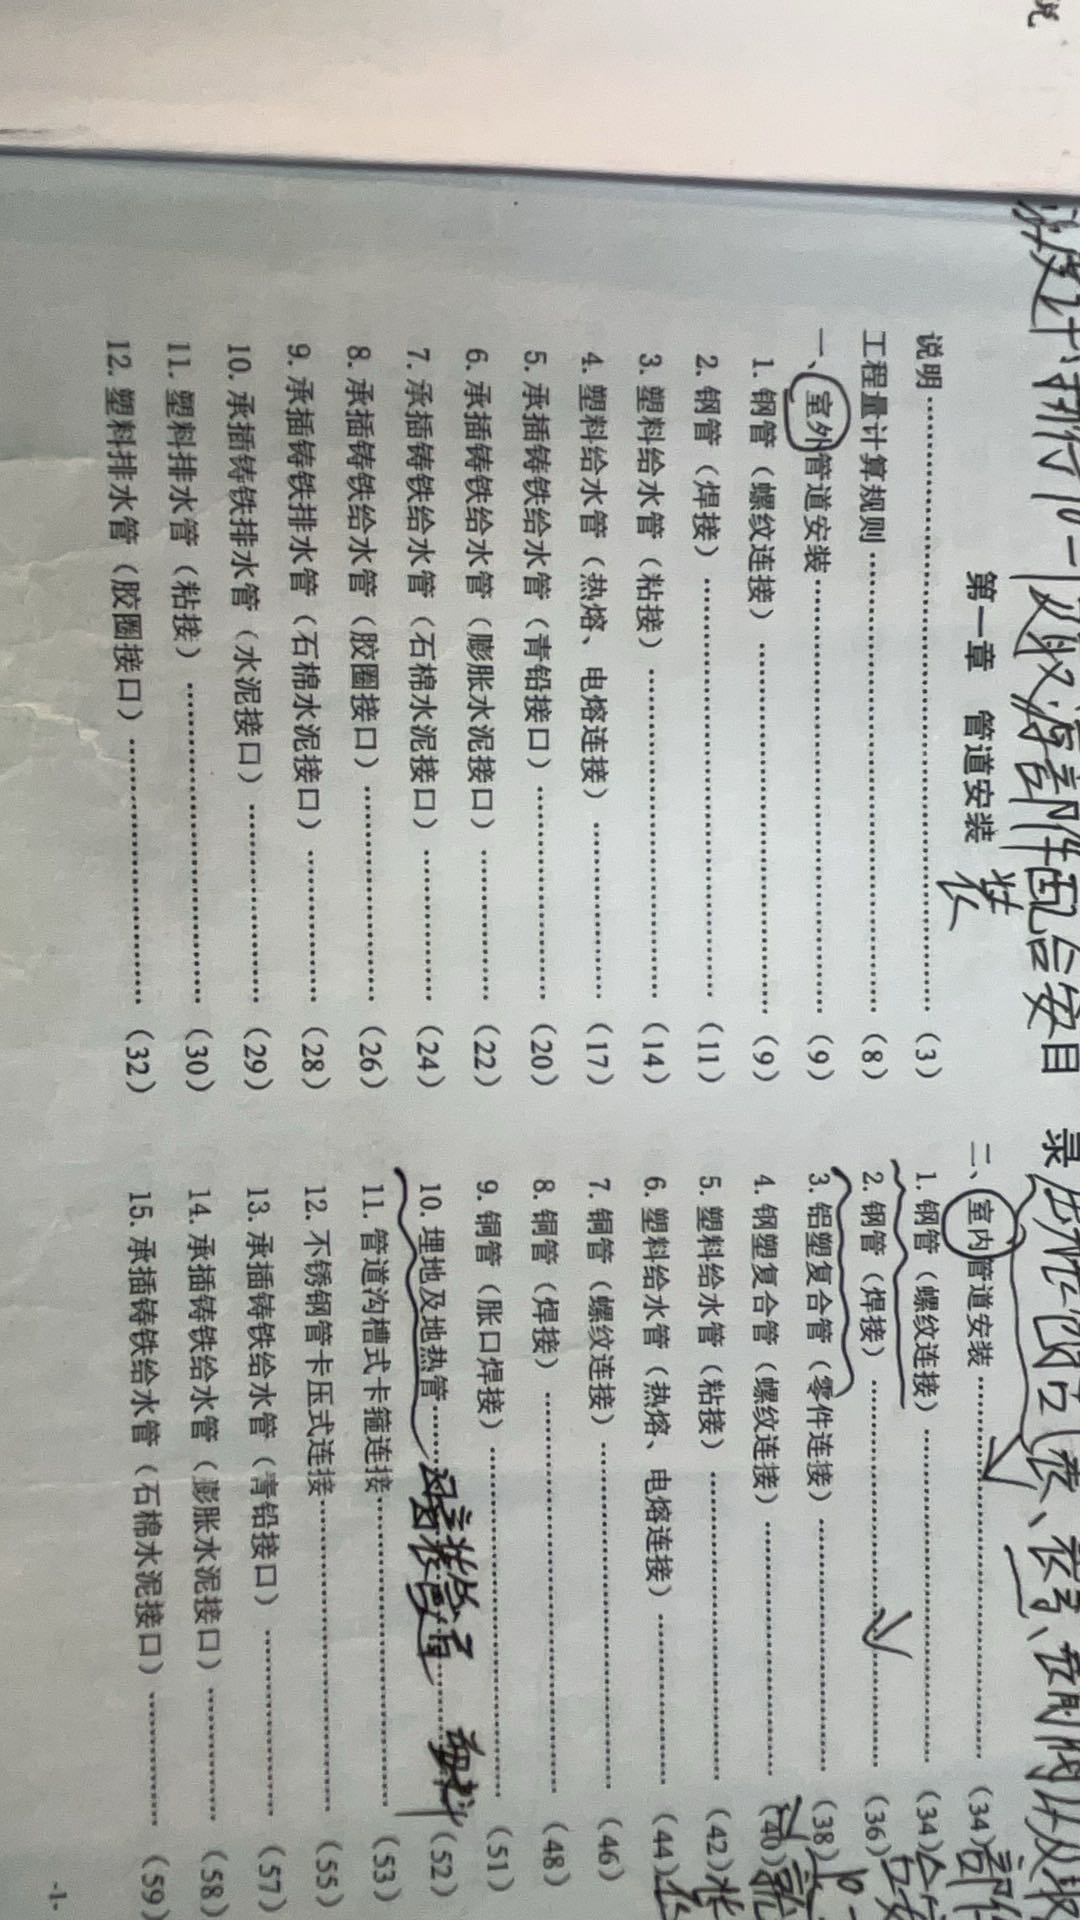 目 录
第一章 管道安装
说明 (3)
工程量计算规则 (8)
一、室外管道安装 (9)
1. 钢管（螺纹连接） (9)
2. 钢管（焊接） (11)
3. 塑料给水管（粘接） (14)
4. 塑料给水管（热熔、电熔连接） (17)
5. 承插铸铁给水管（青铅接口） (20)
6. 承插铸铁给水管（膨胀水泥接口） (22)
7. 承插铸铁给水管（石棉水泥接口） (24)
8. 承插铸铁给水管（胶圈接口） (26)
9. 承插铸铁排水管（石棉水泥接口） (28)
10. 承插铸铁排水管（水泥接口） (29)
11. 塑料排水管（粘接） (30)
12. 塑料排水管（胶圈接口） (32)
二、室内管道安装 (34)
1. 钢管（螺纹连接） (34)
2. 钢管（焊接） (36)
3. 铝塑复合管（零件连接） (38)
4. 钢塑复合管（螺纹连接） (40)
5. 塑料给水管（粘接） (42)
6. 塑料给水管（热熔、电熔连接） (44)
7. 铜管（螺纹连接） (46)
8. 铜管（焊接） (48)
9. 铜管（胀口焊接） (51)
10. 埋地及地热管 (52)
11. 管道沟槽式卡箍连接 (53)
12. 不锈钢管卡压式连接 (55)
13. 承插铸铁给水管（青铅接口） (57)
14. 承插铸铁给水管（膨胀水泥接口） (58)
15. 承插铸铁给水管（石棉水泥接口） (59)
-1-